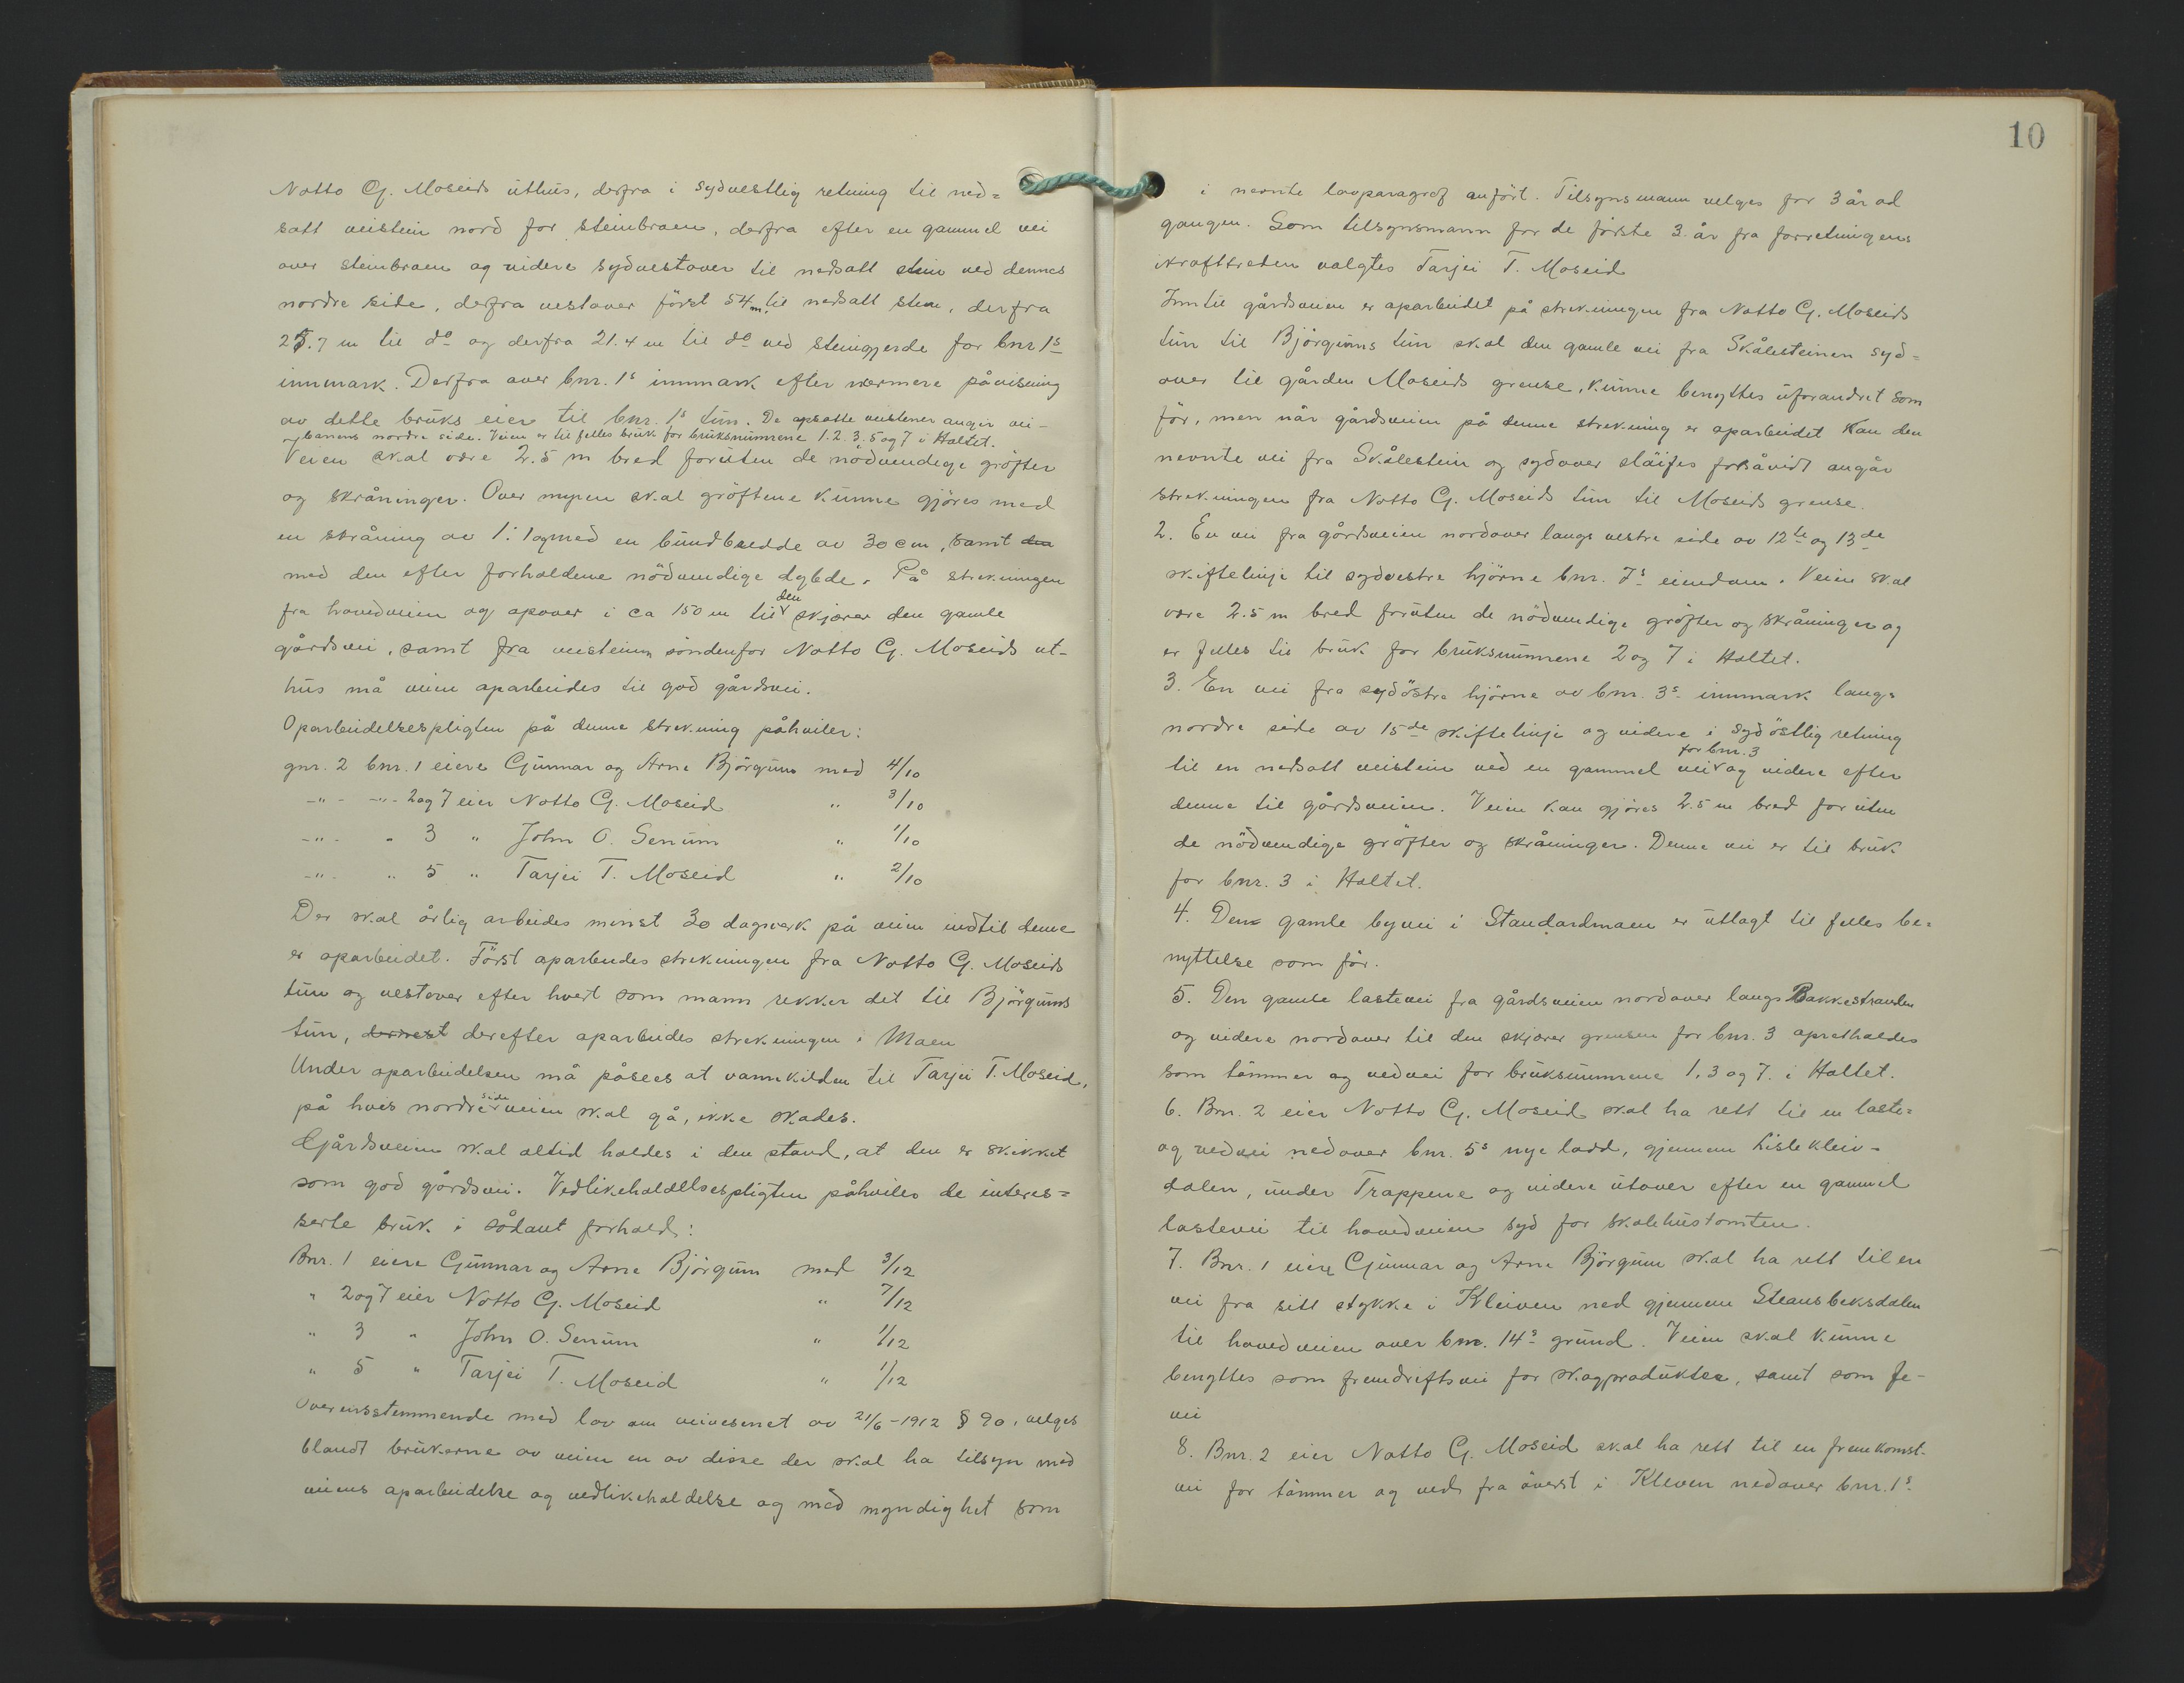 Notto G. Moseids uthus, derfra i sydvestlig retning til ned=
satt veistein nord for steinbroen, derfra efter en gammel vei
over steinbroen og videre sydvestover til nedsatt stein ved dennes
nordre side, derfra vestover först 54 m. til nedsatt sten, derfra
25.7 m til do og derfra 21.4 m til do ved steingjerde for bnr 1s
innmark. Derfra over bnr. 1s innmark efter nærmere påvisning
av dette bruks eier til bnr. 1s tun. De opsatte veistener angir vei-
banens nordre side. Veien er til felles bruk for bruksnumrene 1. 2. 3. 5 og 7 i Haltet.
Veien skal være 2.5 m bred foruten de nödvendige gröfter
og skråninger. Over myren skal gröftene kunne gjöres med
en skråning av 1:1 og med en bundbredde av 30 cm, samt den
med den efter forholdene nödvendige dybde. På strekningen
fra hovedveien og opover i ca 150 m til den skjærer den gamle
gårdsvei, samt fra veisteinen söndenfor Notto G. Moseids ut-
hus må veien oparbeides til god gårdsvei.
Oparbeidelsespligten på denne strekning påhviler:
gnr. 2 bnr. 1 eiere Gunnar og Arne Björgum med 4/10
-"- -"- 2 og 7 eier Notto G. Moseid " 3/10
-"- " 3 " John O. Senum " 1/10
-"- " 5 " Tarjei T. Moseid " 2/10
Der skal årlig arbeides minst 30 dagverk på veien indtil denne
er oparbeidet. Först oparbeides strekningen fra Notto G. Moseids
tun og vestover efter hvert som mann rekker det til Björgums
tun, dernest derefter oparbeides strekningen i Maen
Under oparbeidelsen må påsees at vannkilden til Tarjei T. Moseid,
på hvis nordre side veien skal gå, ikke skades.
Gjårdsveien skal altid holdes i den stand, at den er skikket
som god gårdsvei. Vedlikeholdelsespligten påhviler de interes=
serte bruk i sådant forhold:
Bnr. 1 eiere Gunnar og Arne Björgum med 3/12
" 2 og 7 eier Notto G. Moseid " 7/12
" 3 " John O. Senum " 1/12
" 5 " Tarjei T. Moseid " 1/12
Overensstemmende med lov om veivesenet av 21/6-1912 § 90, velges
blandt brukerne av veien en av disse der skal ha tilsyn med
veiens oparbeidelse og vedlikeholdelse og med myndighet som
10
i nevnte lovparagraf anfört. Tilsynsmann velges for 3 år ad
gangen. Som tilsynsmann for de förste 3 år fra forretningens
ikrafttreden valgtes Tarjei T. Moseid
Inntil gårdsveien er oparbeidet på strekningen fra Notto G. Moseids
tun til Björgums tun skal den gamle vei fra Skålesteinen syd=
over til gården Moseids grense, kunne benyttes uforandret som
för, men når gårdsveien på denne strekning er oparbeidet kan den
nevnte vei fra Skålestein og sydover slöifes forsåvidt angår
strekningen fra Notto G. Moseids tun til Moseids grense.
2. En vei fra gårdsveien nordover langs vestre side av 12te og 13de
skiftelinje til sydvestre hjörne bnr. 7s eiendom. Veien skal
være 2.5 m bred foruten de nödvendige gröfter og skråninger og
er felles til bruk for bruksnumrene 2 og 7 i Haltet.
3. En vei fra sydöstre hjörne av bnr. 3s innmark langs
nordre side av 15de skiftelinje og videre i sydöstlig retning
til en nedsatt veistein ved en gammel vei for bnr. 3 og videre efter
denne til gårdsveien. Veien kan gjöres 2.5 m bred foruten
de nödvendige gröfter og skråninger. Denne vei er til bruk
for bnr. 3 i Haltet.
4. Den gamle byvei i Standardmaen er utlagt til felles be=
nyttelse som för.
5. Den gamle lastevei fra gårdsveien nordover langs Bakkestranden
og videre nordover til den skjærer grensen for bnr. 3 opretholdes
som tömmer og vedvei for bruksnumrene 1, 3 og 7. i Haltet.
6. Bnr. 2 eier Notto G. Moseid skal ha rett til en laste=
og vedvei nedover bnr. 5s nye lodd, gjennem Listekleiv-
dalen, under Trappene og videre utover efter en gammel
lastevei til hovedveien syd for skolehustomten.
7. Bnr. 1 eiere Gunnar og Arne Björgum skal ha rett til en
vei fra sitt stykke i Kleiven ned gjennem Steansbeksdalen
til hovedveien over bnr. 14s grund. Veien skal kunne
benyttes som fremdriftsvei for skogprodukter, samt som fe-
vei
8. Bnr. 2 eier Notto G. Moseid skal ha rett til en fremkomst-
vei for tömmer og ved, fra överst i Kleven nedover bnr. 1s